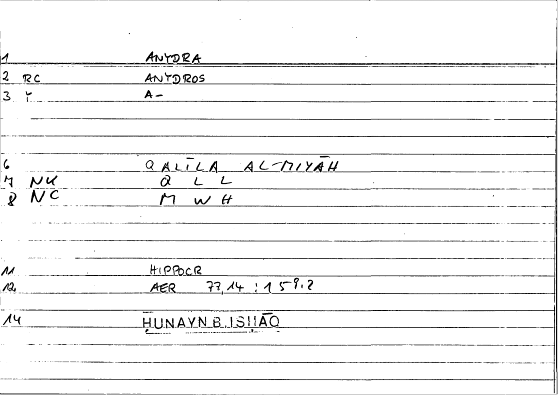 1 ANYDRA
2 RC ANYDROS
3 Y A-
6 QALĪLA AL-MIYĀH
7 NK Q L L
8 NC M W H
11 HIPPOCR
12 AER 77,14 : 159.2
14 ḤUNAYN B. ISḤĀQ